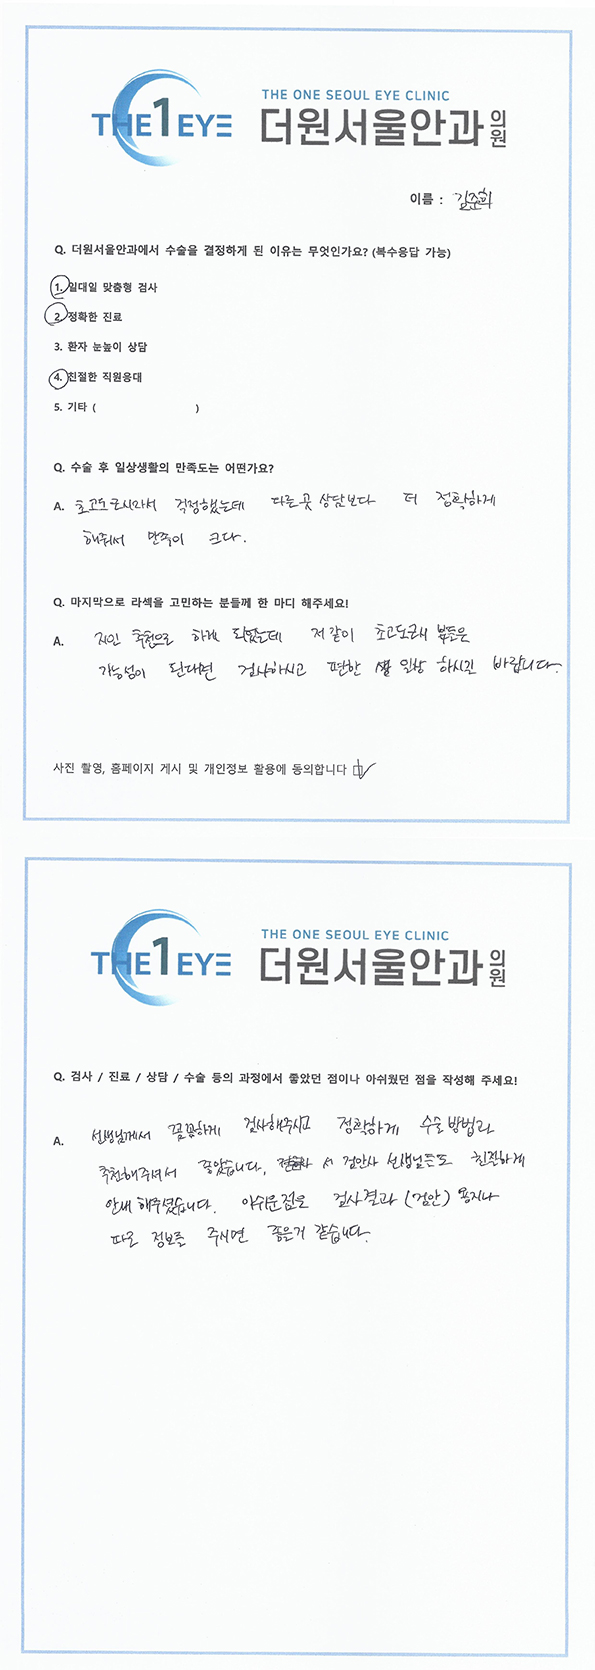 THE1EYE
THE ONE SEOUL EYE CLINIC
더원서울안과의원
이름 : 김준희
Q. 더원서울안과에서 수술을 결정하게 된 이유는 무엇인가요? (복수응답 가능)
1. 일대일 맞춤형 검사
2. 정확한 진료
3. 환자 눈높이 상담
4. 친절한 직원응대
5. 기타 ( )
Q. 수술 후 일상생활의 만족도는 어떤가요?
A. 초고도근시라서 걱정했는데 다른곳 상담보다 더 정확하게
해줘서 만족이 크다.
Q. 마지막으로 라섹을 고민하는 분들께 한 마디 해주세요!
A. 지인 추천으로 하게 되었는데 저같이 초고도근시 분들은
가능성이 된다면 검사하시고 편한 일상 하시길 바랍니다.
사진 촬영, 홈페이지 게시 및 개인정보 활용에 동의합니다
THE1EYE
THE ONE SEOUL EYE CLINIC
더원서울안과의원
Q. 검사 / 진료 / 상담 / 수술 등의 과정에서 좋았던 점이나 아쉬웠던 점을 작성해 주세요!
A. 선생님께서 꼼꼼하게 검사해주시고 정확하게 수술방법과
추천해주셔서 좋았습니다. 서 검안사 선생님들도 친절하게
안내 해주셨습니다. 아쉬운점은 검사결과 (검안) 용지나
따로 정보를 주시면 좋은거 같습니다.